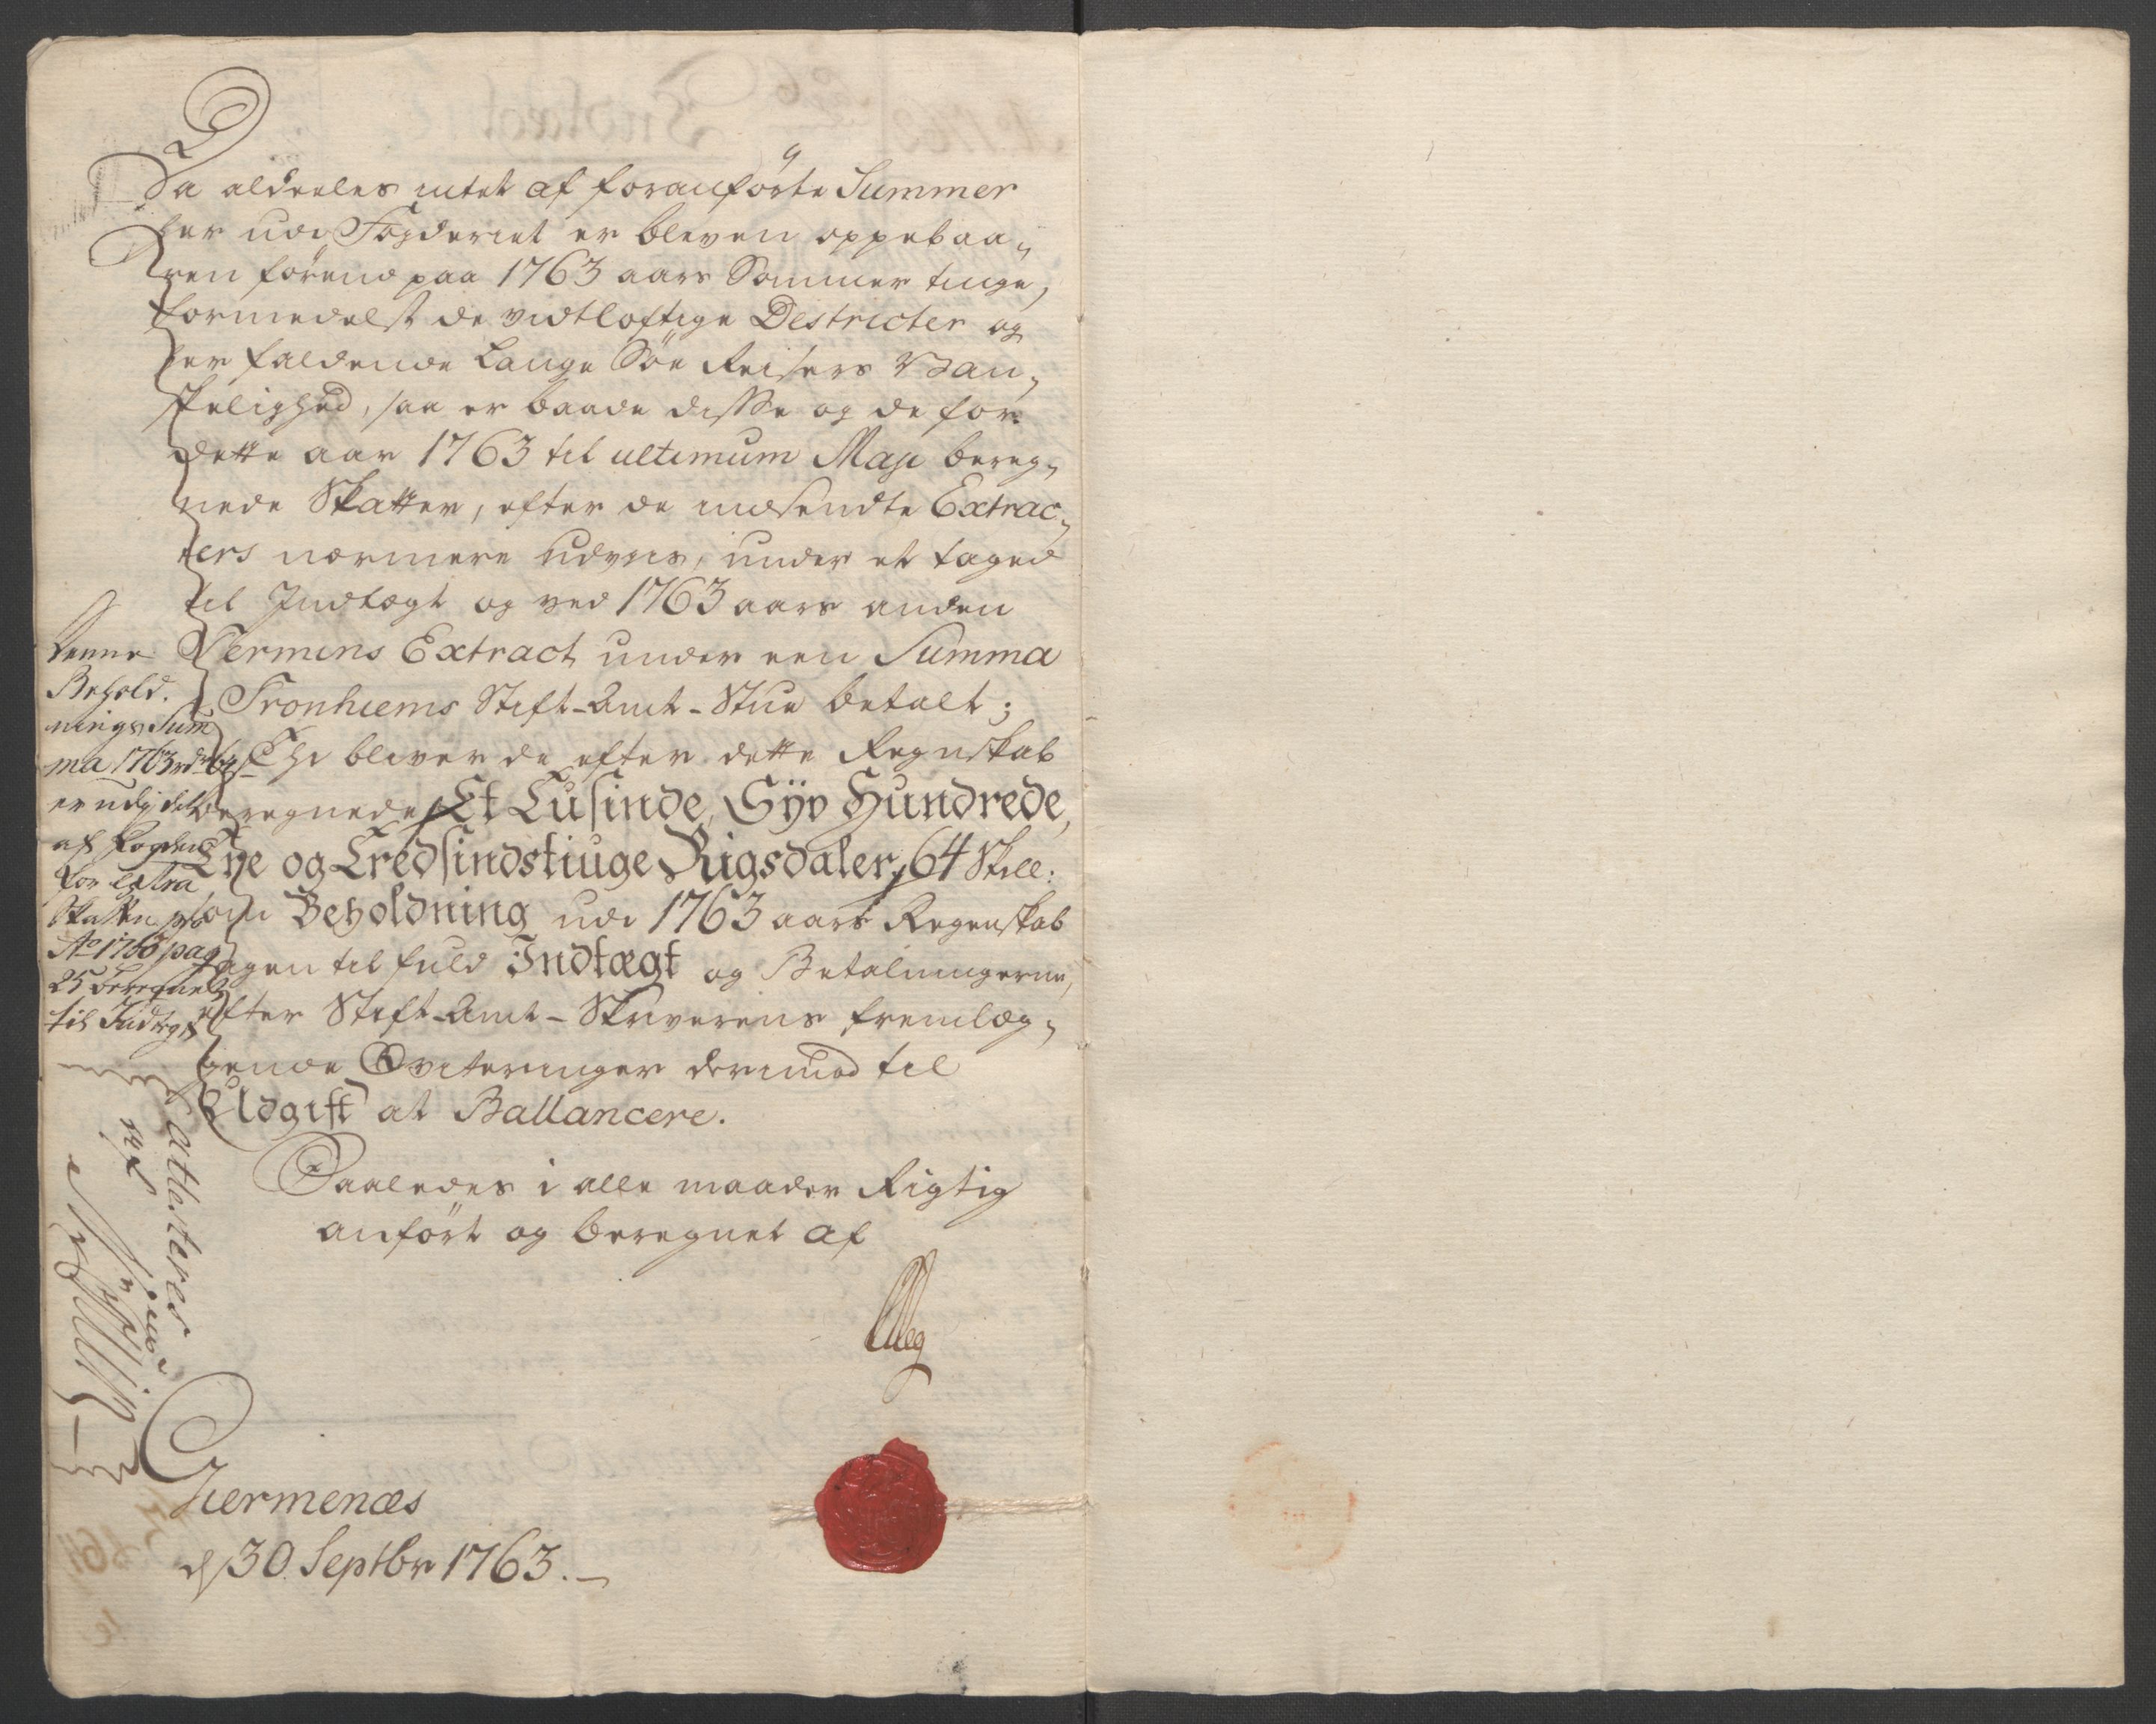 Da aldeeles intet af foranførte Summer
her udi Fogderiet er bleven oppebaa„
ren førend paa 1763 aars Sommer tinge,
formedelst de vidtløftige Destricter og
her faldende Lange Søe Reisers Van„
skelighed, saa er baade disse og de for
dette aar 1763 til ultimum Maji bereg„
nede Skatter, efter de indsendte Extrac„
ters nærmere Udviis, under et taged
til Indtægt og ved 1763 aars anden
Termins Extract under een Summa
Tronhiems Stift-Amt-Stue betalt;
Thi bliver de efter dette Regnskab
beregnede Et Tusinde, Syv Hundrede,
Tre og Tredsindstiuge Rigsdaler, 64 Skill:
som Beholdning udi 1763 aars Regenskab
tagen til fuld Indtægt og Betalningerne,
efter Stift-Amt-Skriverens fremlæg„
gende Qviteringer derimod til
Udgift at Ballancere.
Saaledes i alle maader Rigtig
anført og beregnet af
Denne
Behold„
nings Sum
ma 1763 rdr 64 s
er udj det
af Fogden
for Extra
Skatten pro
Ao 1763 pag
25 beregnet
til Indtægt
attesteres
af
Giermenæs
d 30 Septbr 1763.